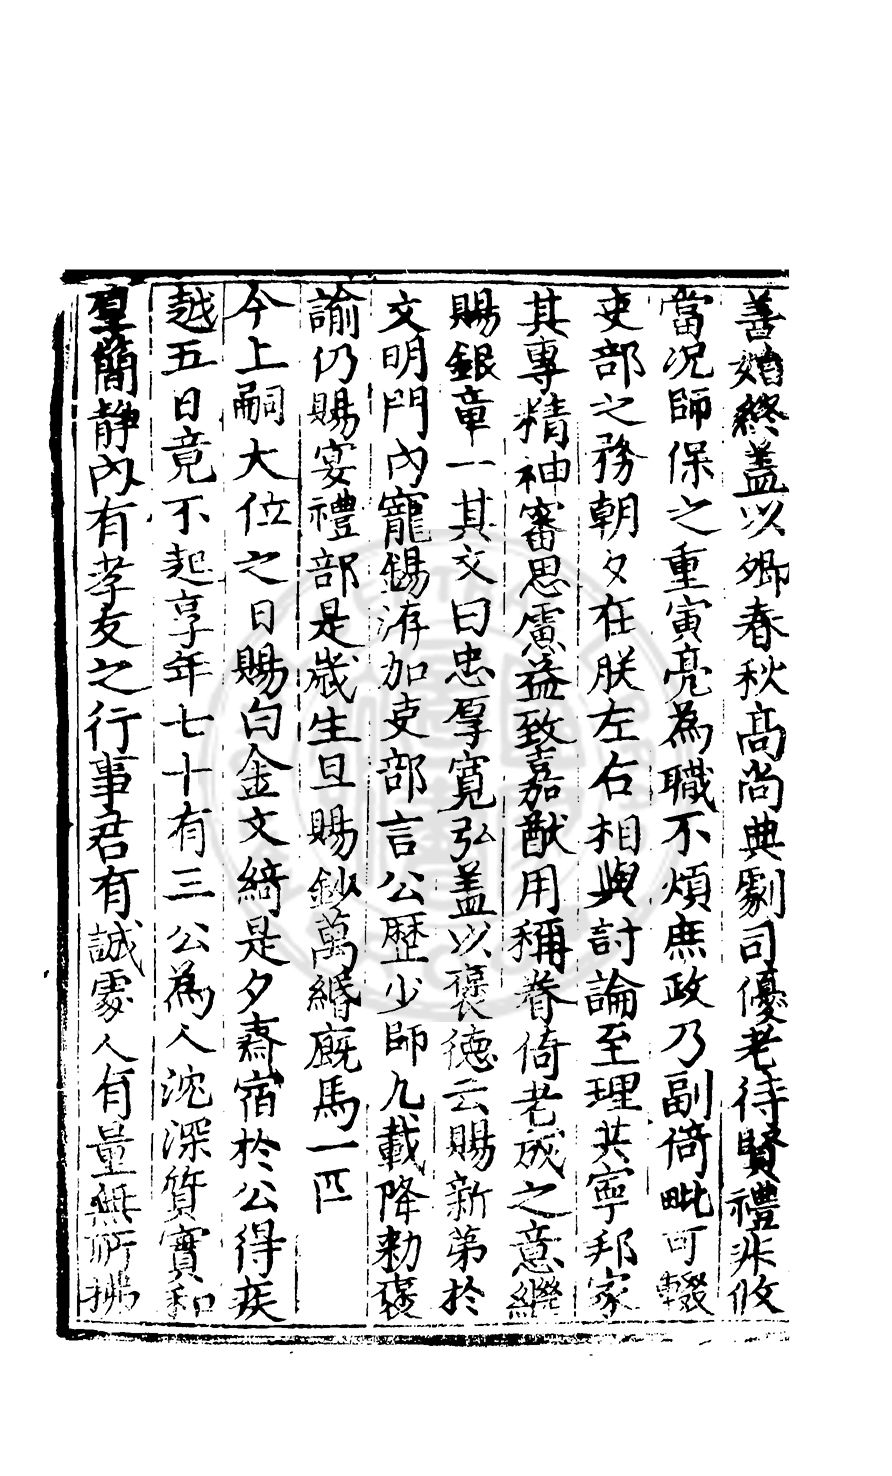 善始終蓋以卿春秋高尚典劇司優老待賢禮非攸
當况師保之重寅亮為職不煩庶政乃副倚毗可輟
吏部之務朝夕在朕左右相與討論至理共寧邦家
其專精神審思慮益致嘉猷用稱眷倚老成之意繼
賜銀章一其文曰忠厚寬弘蓋以褒德云賜新第於
文明門內寵錫洊加吏部言公歷少師九載降勑褒
諭仍賜宴禮部是歲生旦賜鈔萬緡廐馬一匹
今上嗣大位之日賜白金文綺是夕齋宿於公得疾
越五日竟不起享年七十有三公為人沈深質實和
厚簡靜內有孝友之行事君有誠處人有量無所拂